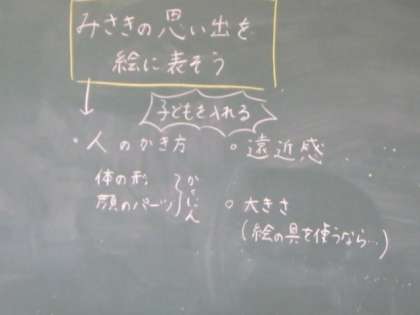 みさきの思い出を
絵に表そう
子どもを入れる
・人のかき方
○遠近感
体の形
顔のパーツ
かくにん
○大きさ
(絵の具を使うなら…)